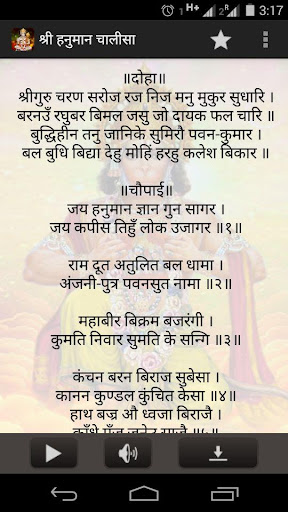 1 H 2 R 3:17
श्री हनुमान चालीसा
॥दोहा॥
श्रीगुरु चरण सरोज रज निज मनु मुकुर सुधारि ।
बरनउँ रघुबर बिमल जसु जो दायक फल चारि ॥
बुद्धिहीन तनु जानिके सुमिरौ पवन-कुमार ।
बल बुधि बिद्या देहु मोहिं हरहु कलेश बिकार ॥
॥चौपाई॥
जय हनुमान ज्ञान गुन सागर ।
जय कपीस तिहुँ लोक उजागर ॥१॥
राम दूत अतुलित बल धामा ।
अंजनी-पुत्र पवनसुत नामा ॥२॥
महाबीर बिक्रम बजरंगी ।
कुमति निवार सुमति के सन्गि ॥३॥
कंचन बरन बिराज सुबेसा ।
कानन कुण्डल कुंचित केसा ॥४॥
हाथ बज्र औ ध्वजा बिराजै ।